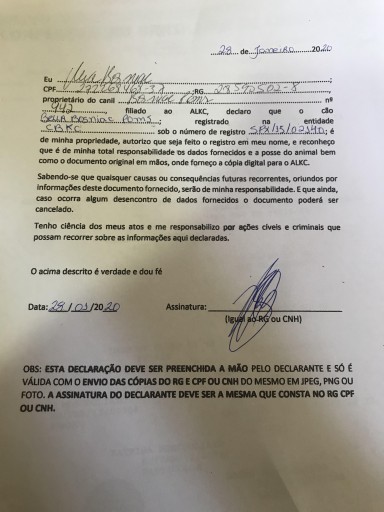 28 de Janeiro 2020
Eu
CPF RG
proprietário do canil nº
442 filiado ao ALKC, declaro que o cão
Bella Bosniac Poms registrado na entidade
CBKC sob o número de registro ; é
de minha propriedade, autorizo que seja feito o registro em meu nome, e reconheço
que é de minha total responsabilidade os dados fornecidos e a posse do animal bem
como o documento original em mãos, onde forneço a cópia digital para o ALKC.
Sabendo-se que quaisquer causas ou consequências futuras recorrentes, oriundos por
informações deste documento fornecido, serão de minha responsabilidade. E que ainda,
caso ocorra algum desencontro de dados fornecidos o documento poderá ser
cancelado.
Tenho ciência dos meus atos e me responsabilizo por ações cíveis e criminais que
possam recorrer sobre as informações aqui declaradas.
O acima descrito é verdade e dou fé
Data: 28/01/2020 Assinatura:
(Igual ao RG ou CNH)
OBS: ESTA DECLARAÇÃO DEVE SER PREENCHIDA A MÃO PELO DECLARANTE E SÓ É
VÁLIDA COM O ENVIO DAS CÓPIAS DO RG E CPF OU CNH DO MESMO EM JPEG, PNG OU
FOTO. A ASSINATURA DO DECLARANTE DEVE SER A MESMA QUE CONSTA NO RG CPF
OU CNH.